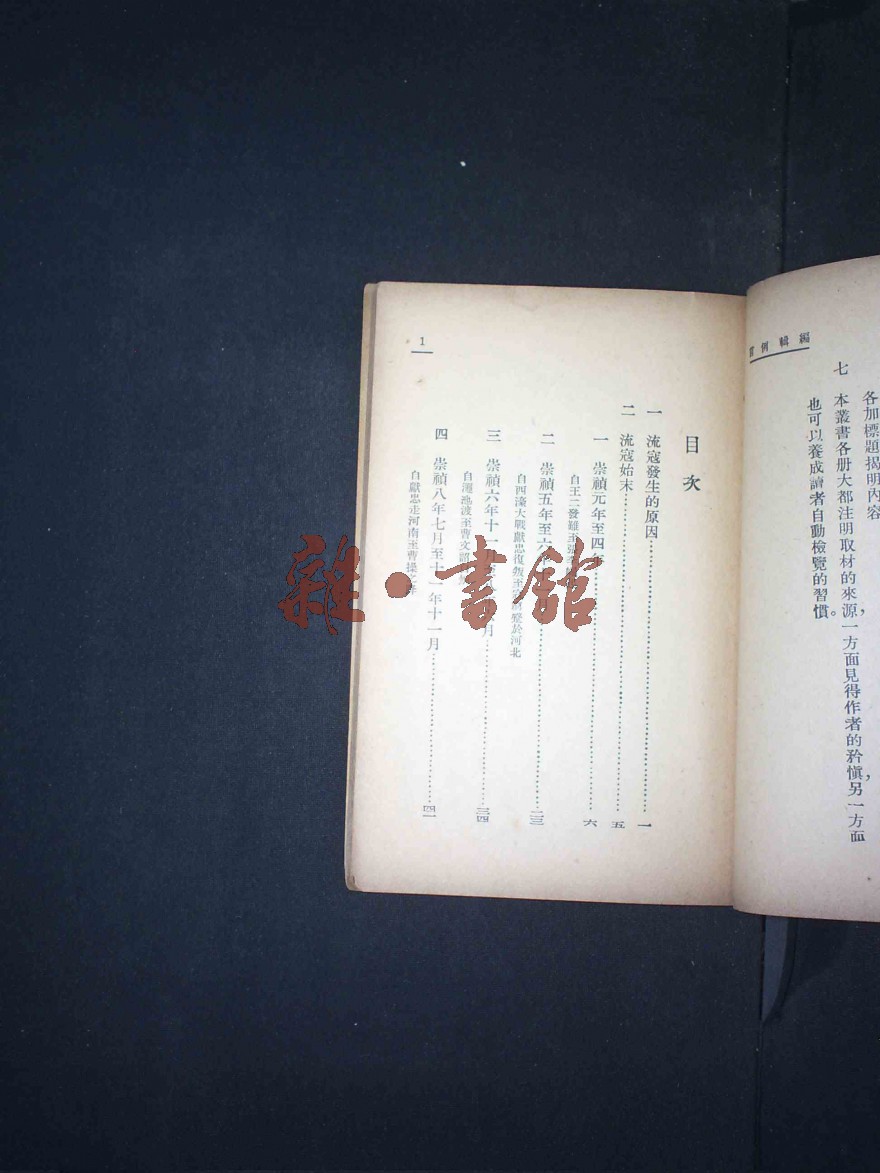 編輯例言
各加標題揭明內容
七 本叢書各册大都注明取材的來源，一方面見得作者的矜愼，另一方面
也可以養成讀者自動檢覽的習慣。
1
目次
一 流寇發生的原因……一
二 流寇始末……五
一 崇禎元年至四年……六
自王二發難至
二 崇禎五年至六年……二三
自四濠大戰獻忠復叛至 於河北
三 崇禎六年十一月 月……三四
自澠池渡至曹文詔
四 崇禎八年七月至十一年十一月……四一
自獻忠走河南至曹操
雜·書館